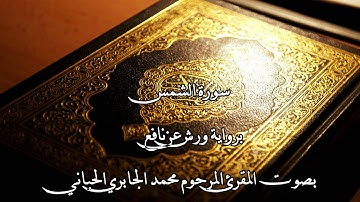 سورة الشمس
برواية ورش عن نافع
بصوت المقرئ المرحوم محمد الجابري الحياني